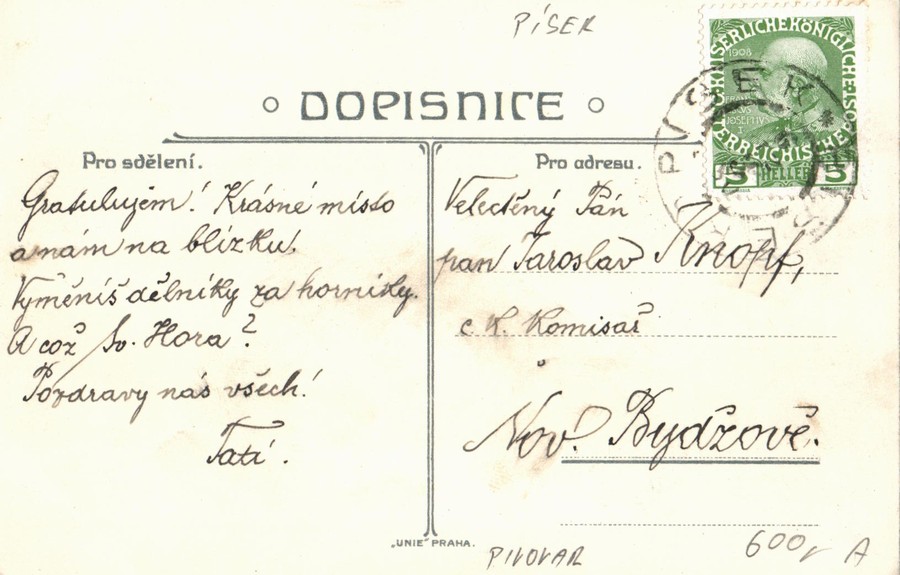 PÍSEK
DOPISNICE
Pro sdělení.
Gratulujem! Krásné místo
a nám na blízku!
Vyměníš dělníky za horníky.
A což Sv. Hora?
Pozdravy nás všech!
Tatí.
Pro adresu.
Veletěný Pán
pan Jaroslav Knopf,
c. k. Komisař
Nov. Bydžově.
KAISERLICHE KÖNIGLICHE
ÖSTERREICHISCHE POST
1908
5 HELLER 5
PISEK
„UNIE“ PRAHA.
PIVOVAR
600,- A